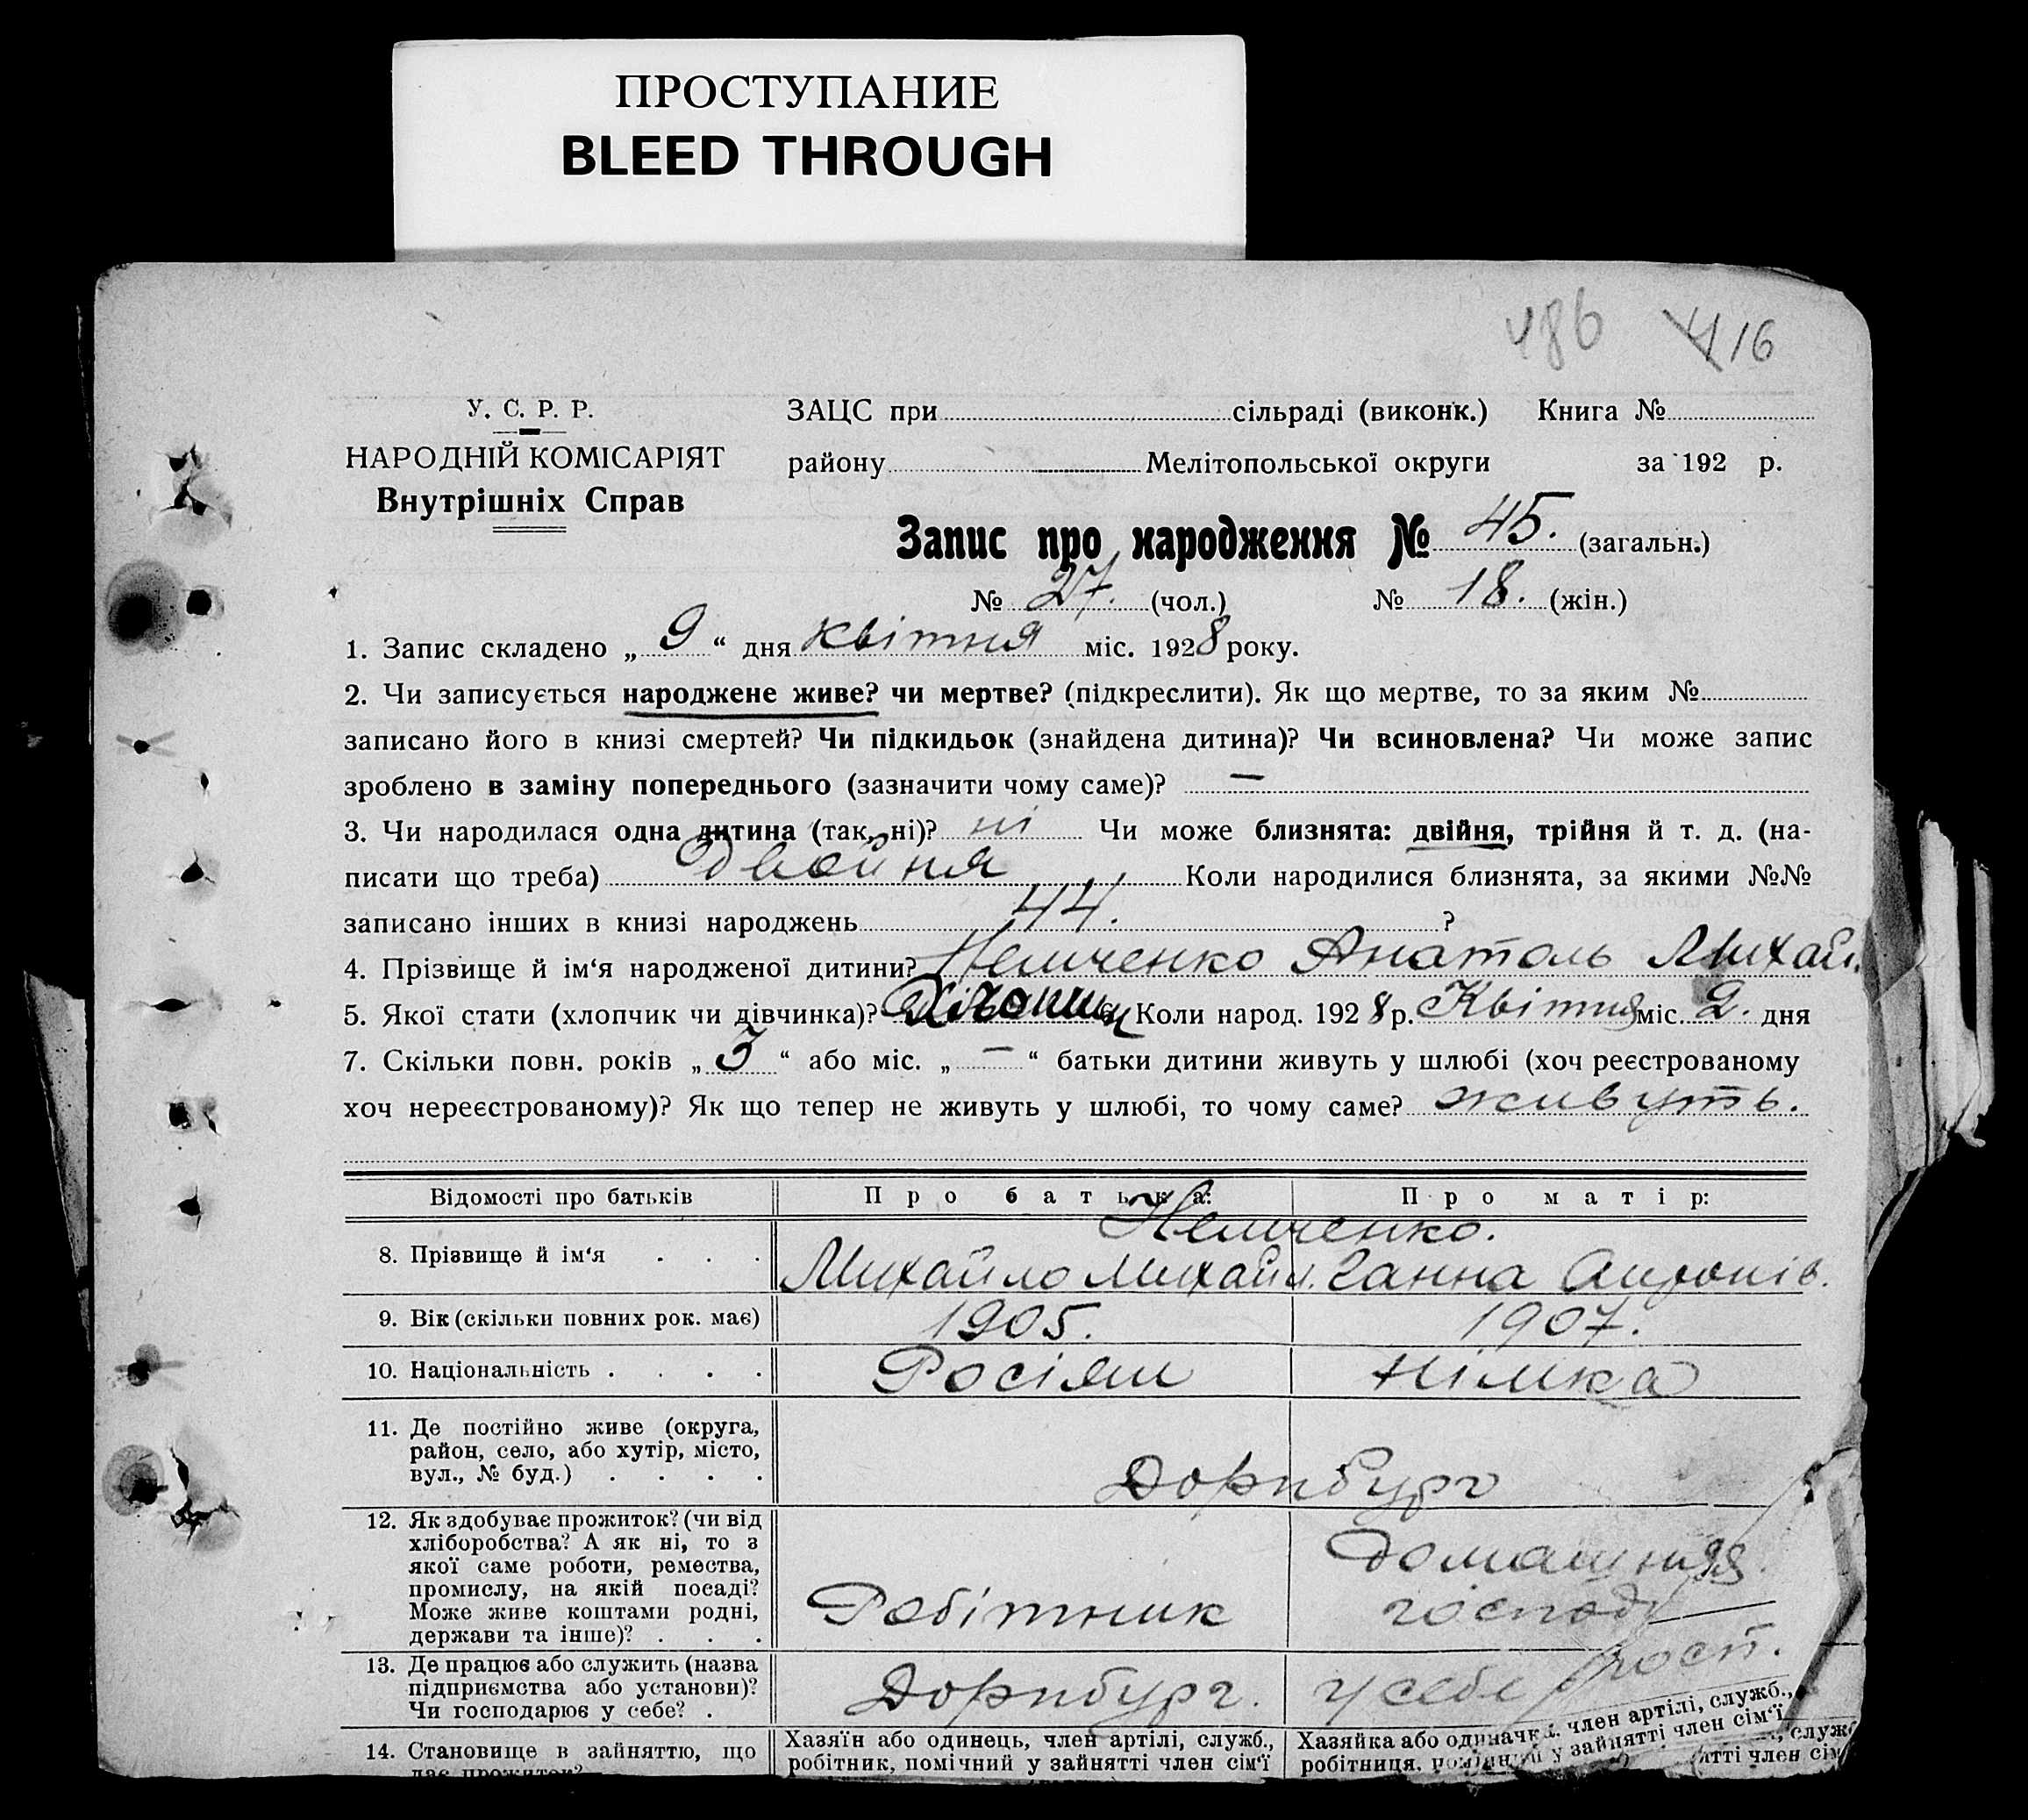 ПРОСТУПАНИЕ
BLEED THROUGH
486 416
У. С. Р. Р.
НАРОДНІЙ КОМІСАРІЯТ
Внутрішніх Справ
ЗАЦС при сільраді (виконк.) Книга №
району Мелітопольської округи за 192 р.
Запис про народження № 45. (загальн.)
№ 27. (чол.) № 18. (жін.)
1. Запис складено „ 9 “ дня квітня міс. 1928 року.
2. Чи записується народжене живе? чи мертве? (підкреслити). Як що мертве, то за яким №
записано його в книзі смертей? Чи підкидьок (знайдена дитина)? Чи всиновлена? Чи може запис
зроблено в заміну попереднього (зазначити чому саме)? —
3. Чи народилася одна дитина (так, ні)? ні Чи може близнята: двійня, трійня й т. д. (на-
писати що треба) двойня Коли народилися близнята, за якими №№
записано інших в книзі народжень 44. ?
4. Прізвище й ім‘я народженої дитини? Немченко Анатоль Михайл.
5. Якої стати (хлопчик чи дівчинка)? 6. Коли народ. 1928 р. Квітня міс. 2. дня
7. Скільки повн. років „ 3 “ або міс. „ — “ батьки дитини живуть у шлюбі (хоч реєстрованому
хоч нереєстрованому)? Як що тепер не живуть у шлюбі, то чому саме? живуть.
Відомості про батьків Про батька: Про матір:
Немченко.
8. Прізвище й ім‘я . . . Михайло Михайл. Ганна
9. Вік (скільки повних рок. має) 1905. 1907.
10. Національність . . . . Росіян Німка
11. Де постійно живе (округа,
район, село, або хутір, місто,
вул., № буд.) . . . . Дорнбург
12. Як здобуває прожиток? (чи від
хліборобства? А як ні, то з
якої саме роботи, ремества,
промислу, на якій посаді?
Може живе коштами родні,
держави та інше)? . . .
Робітник
Домашняя
господ
13. Де працює або служить (назва
підприємства або установи)?
Чи господарює у себе? .
Дорнбург. у себе госп.
14. Становище в зайняттю, що
дає прожиток?
Хазяїн або одинець, член артілі, служб.,
робітник, помічний у зайнятті член сім‘ї
Хазяйка або одиначка, член артілі, служб.,
робітниця, помічний у зайнятті член сім‘ї